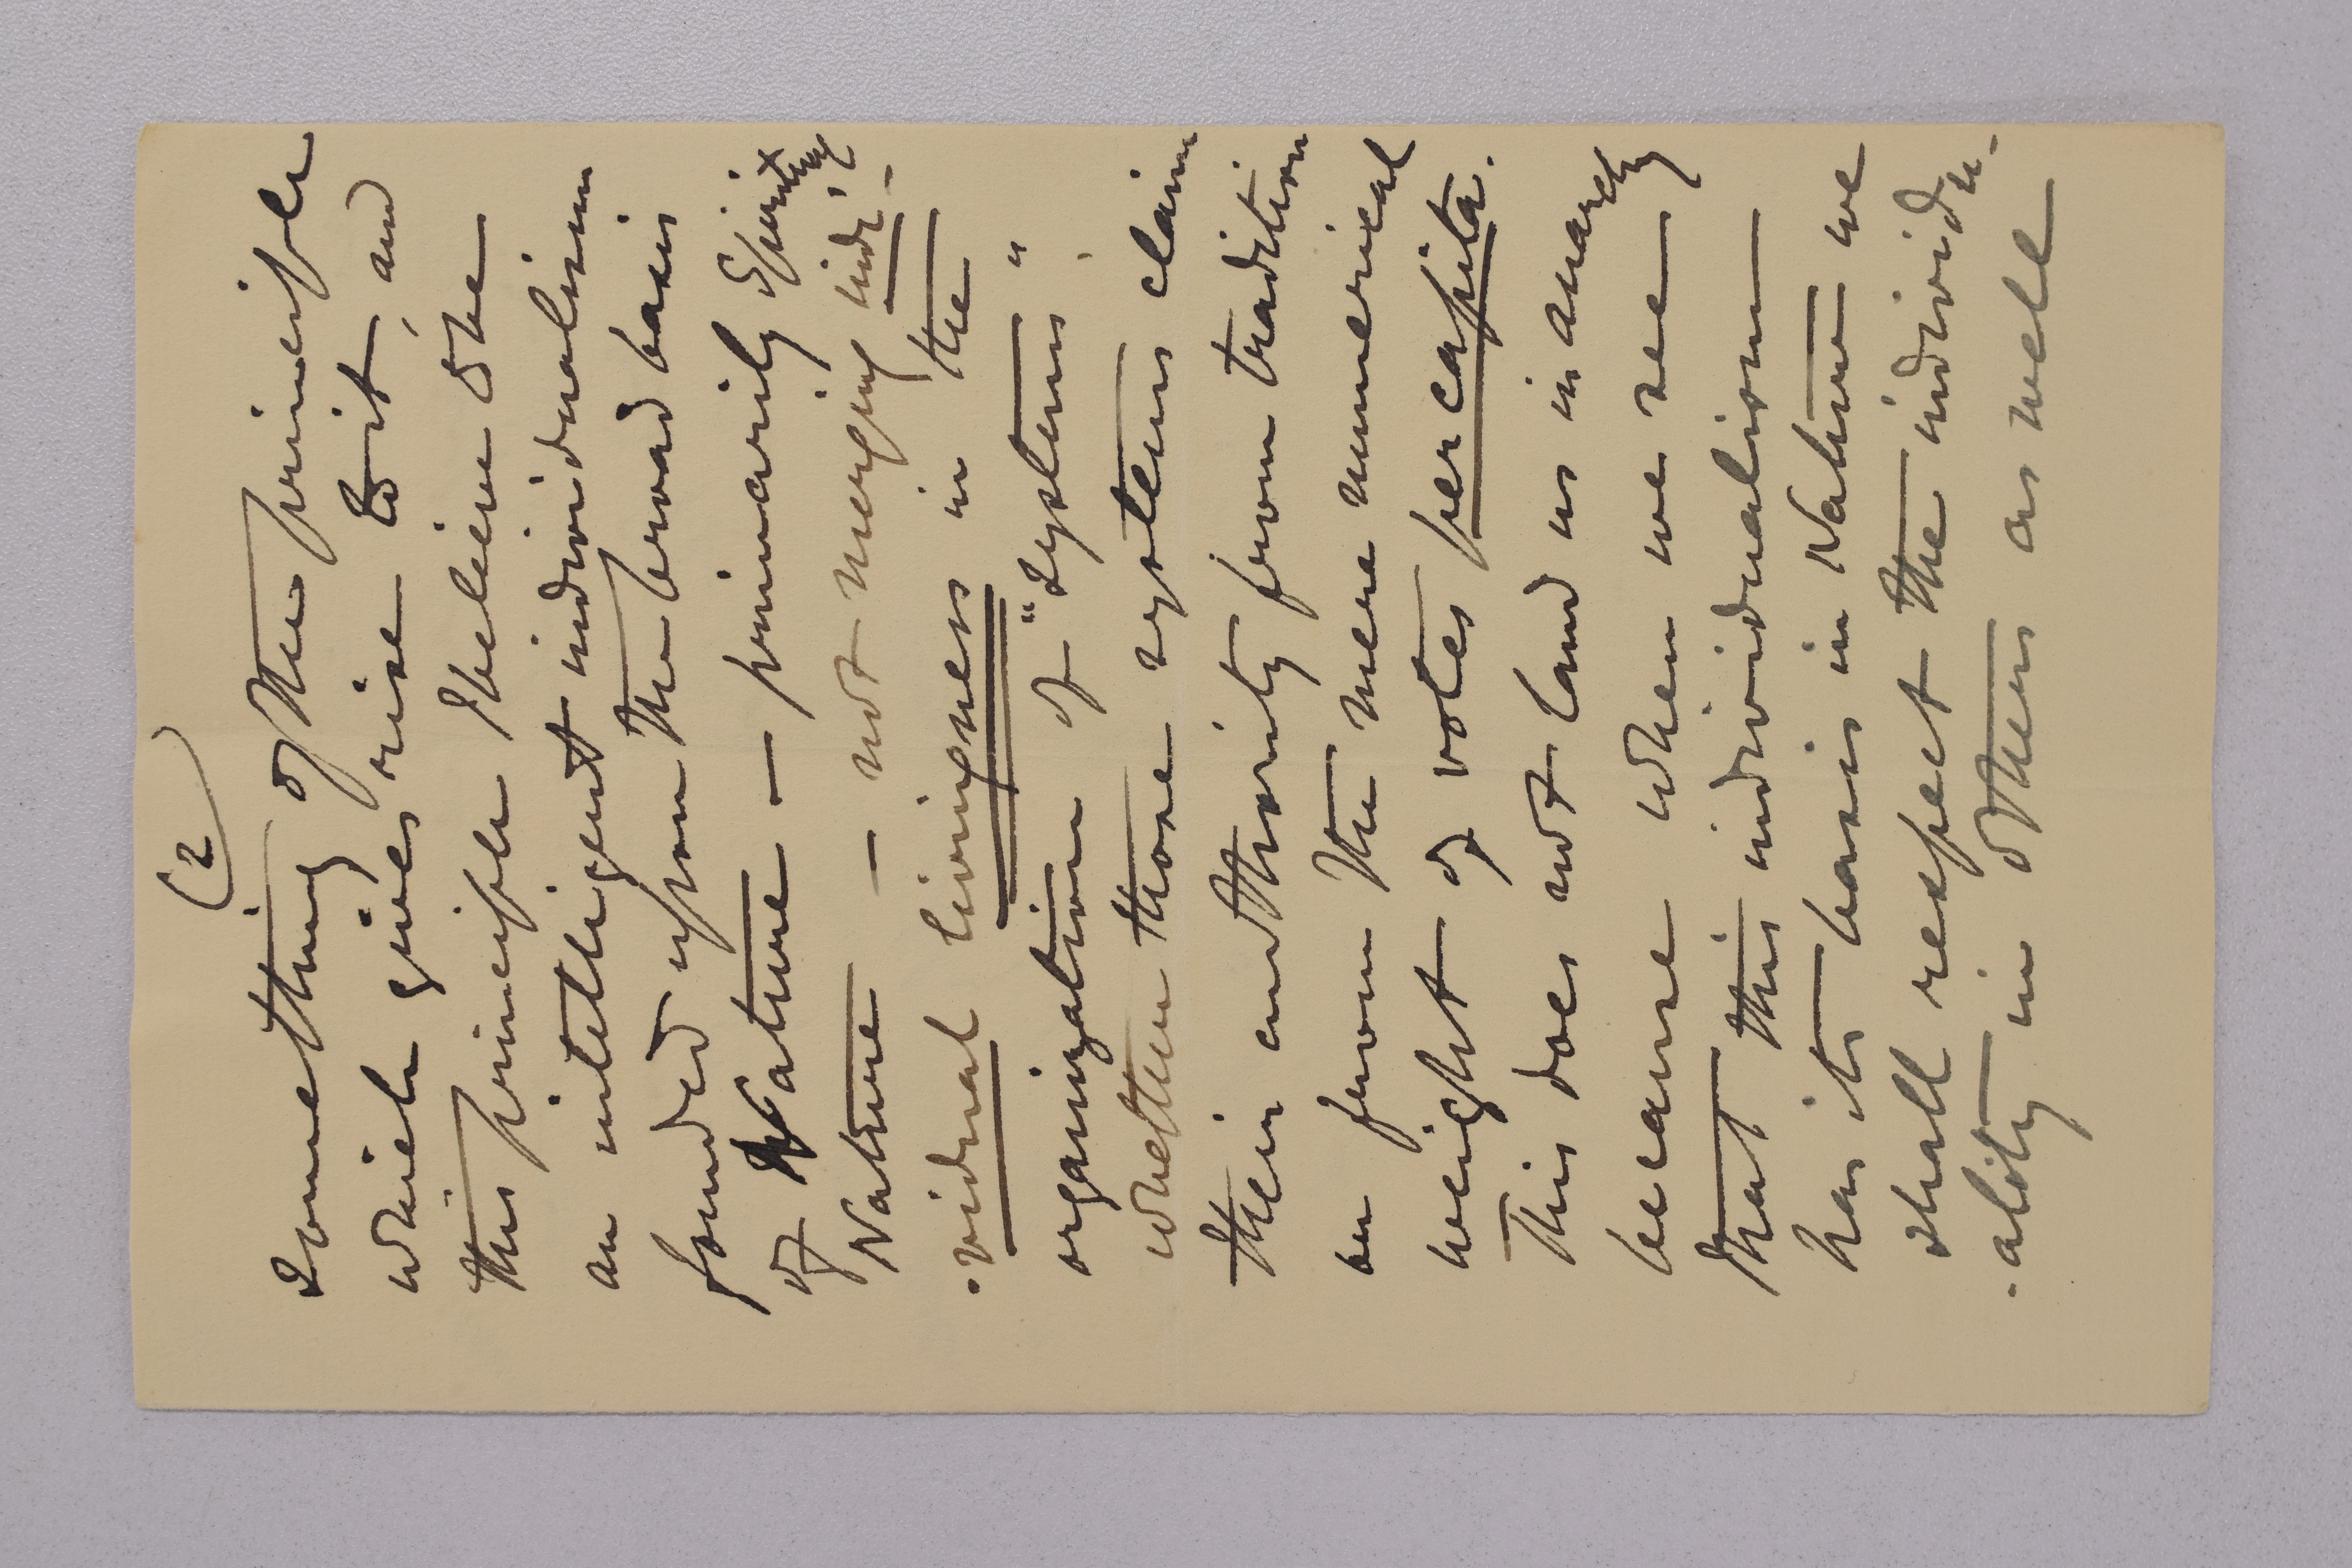 (2)
something of the principle
which gives rise to it, and
this principle I believe to be
an intelligent individualism
founded upon the broad basis
of Nature — primarily Spirit
Nature — not merging indi-
-vidual livingness in the
organization of "systems"
whether those systems claim
their authority from tradition
or from the mere numerical
weight of votes per capita.
This does not land us in anarchy
because when we see
that this individualism
has its basis in Nature we
shall respect the individu-
-ality in others as well